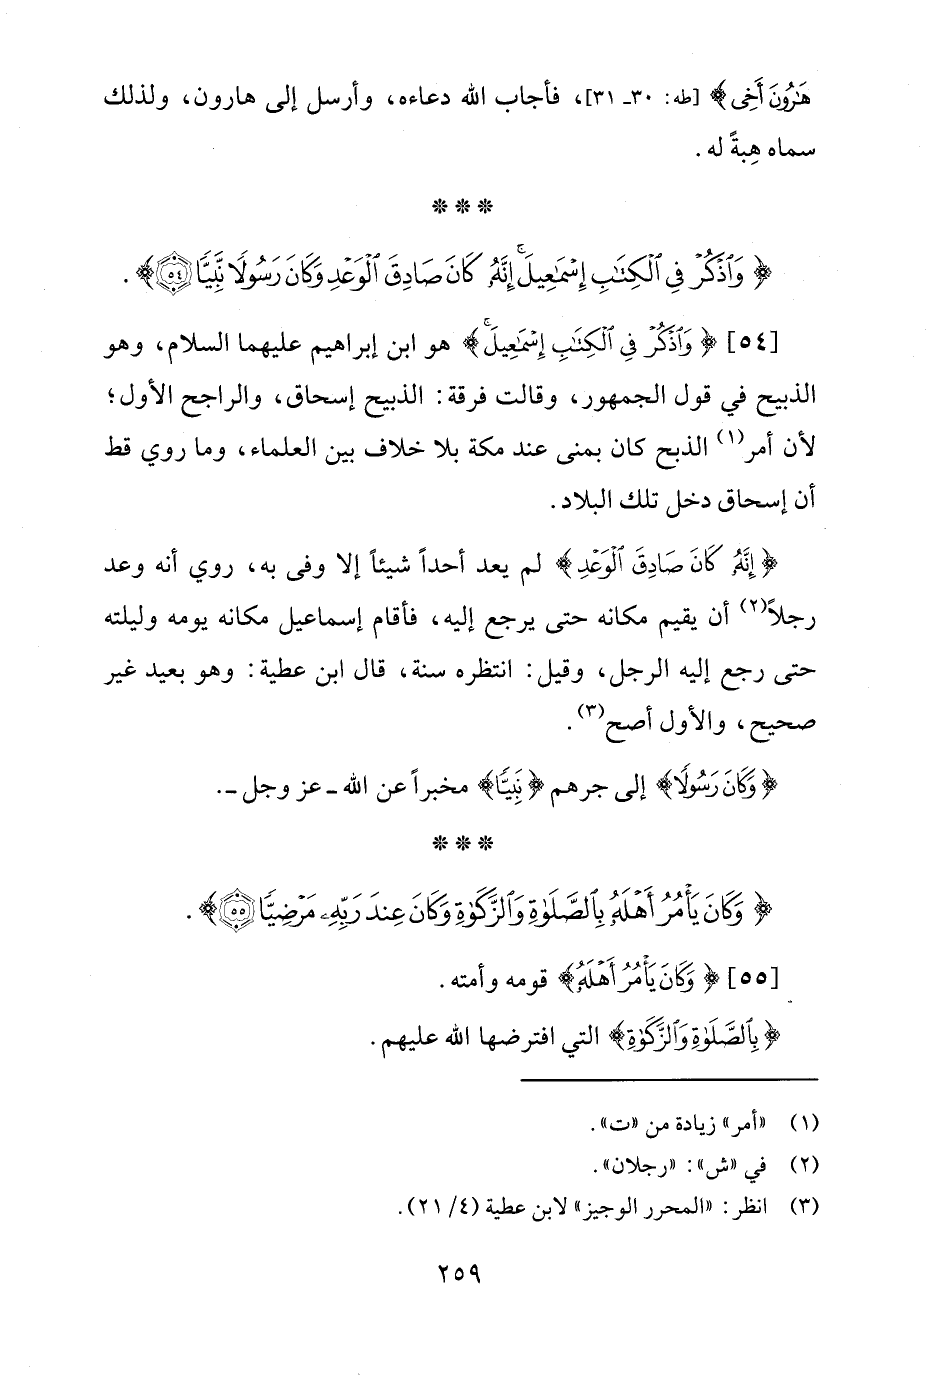 هَٰرُونَ أَخِي﴾ [طه: ٣٠ـ ٣١]، فأجاب الله دعاءه، وأرسل إلى هارون، ولذلك
سماه هِبةً له .
* * *
﴿ وَٱذْكُرْ فِي ٱلْكِتَٰبِ إِسْمَٰعِيلَۚ إِنَّهُۥ كَانَ صَادِقَ ٱلْوَعْدِ وَكَانَ رَسُولًا نَّبِيًّا ٥٤﴾ .
[٥٤] ﴿ وَٱذْكُرْ فِي ٱلْكِتَٰبِ إِسْمَٰعِيلَۚ ﴾ هو ابن إبراهيم عليهما السلام، وهو
الذبيح في قول الجمهور، وقالت فرقة: الذبيح إسحاق، والراجح الأول؛
لأن أمر(١) الذبح كان بمنى عند مكة بلا خلاف بين العلماء، وما روي قط
أن إسحاق دخل تلك البلاد.
﴿ إِنَّهُۥ كَانَ صَادِقَ ٱلْوَعْدِ﴾ لم يعد أحداً شيئاً إلا وفى به، روي أنه وعد
رجلاً(٢) أن يقيم مكانه حتى يرجع إليه، فأقام إسماعيل مكانه يومه وليلته
حتى رجع إليه الرجل، وقيل: انتظره سنة، قال ابن عطية: وهو بعيد غير
صحيح، والأول أصح(٣).
﴿ وَكَانَ رَسُولًا﴾ إلى جرهم ﴿نَّبِيًّا﴾ مخبراً عن الله ـ عز وجل ـ.
* * *
﴿ وَكَانَ يَأْمُرُ أَهْلَهُۥ بِٱلصَّلَوٰةِ وَٱلزَّكَوٰةِ وَكَانَ عِندَ رَبِّهِۦ مَرْضِيًّا ٥٥﴾ .
[٥٥] ﴿ وَكَانَ يَأْمُرُ أَهْلَهُۥ﴾ قومه وأمته .
﴿ بِٱلصَّلَوٰةِ وَٱلزَّكَوٰةِ﴾ التي افترضها الله عليهم .
(١) «أمر» زيادة من «ت».
(٢) في «ش»: «رجلان».
(٣) انظر: «المحرر الوجيز» لابن عطية (٤/ ٢١).
٢٥٩